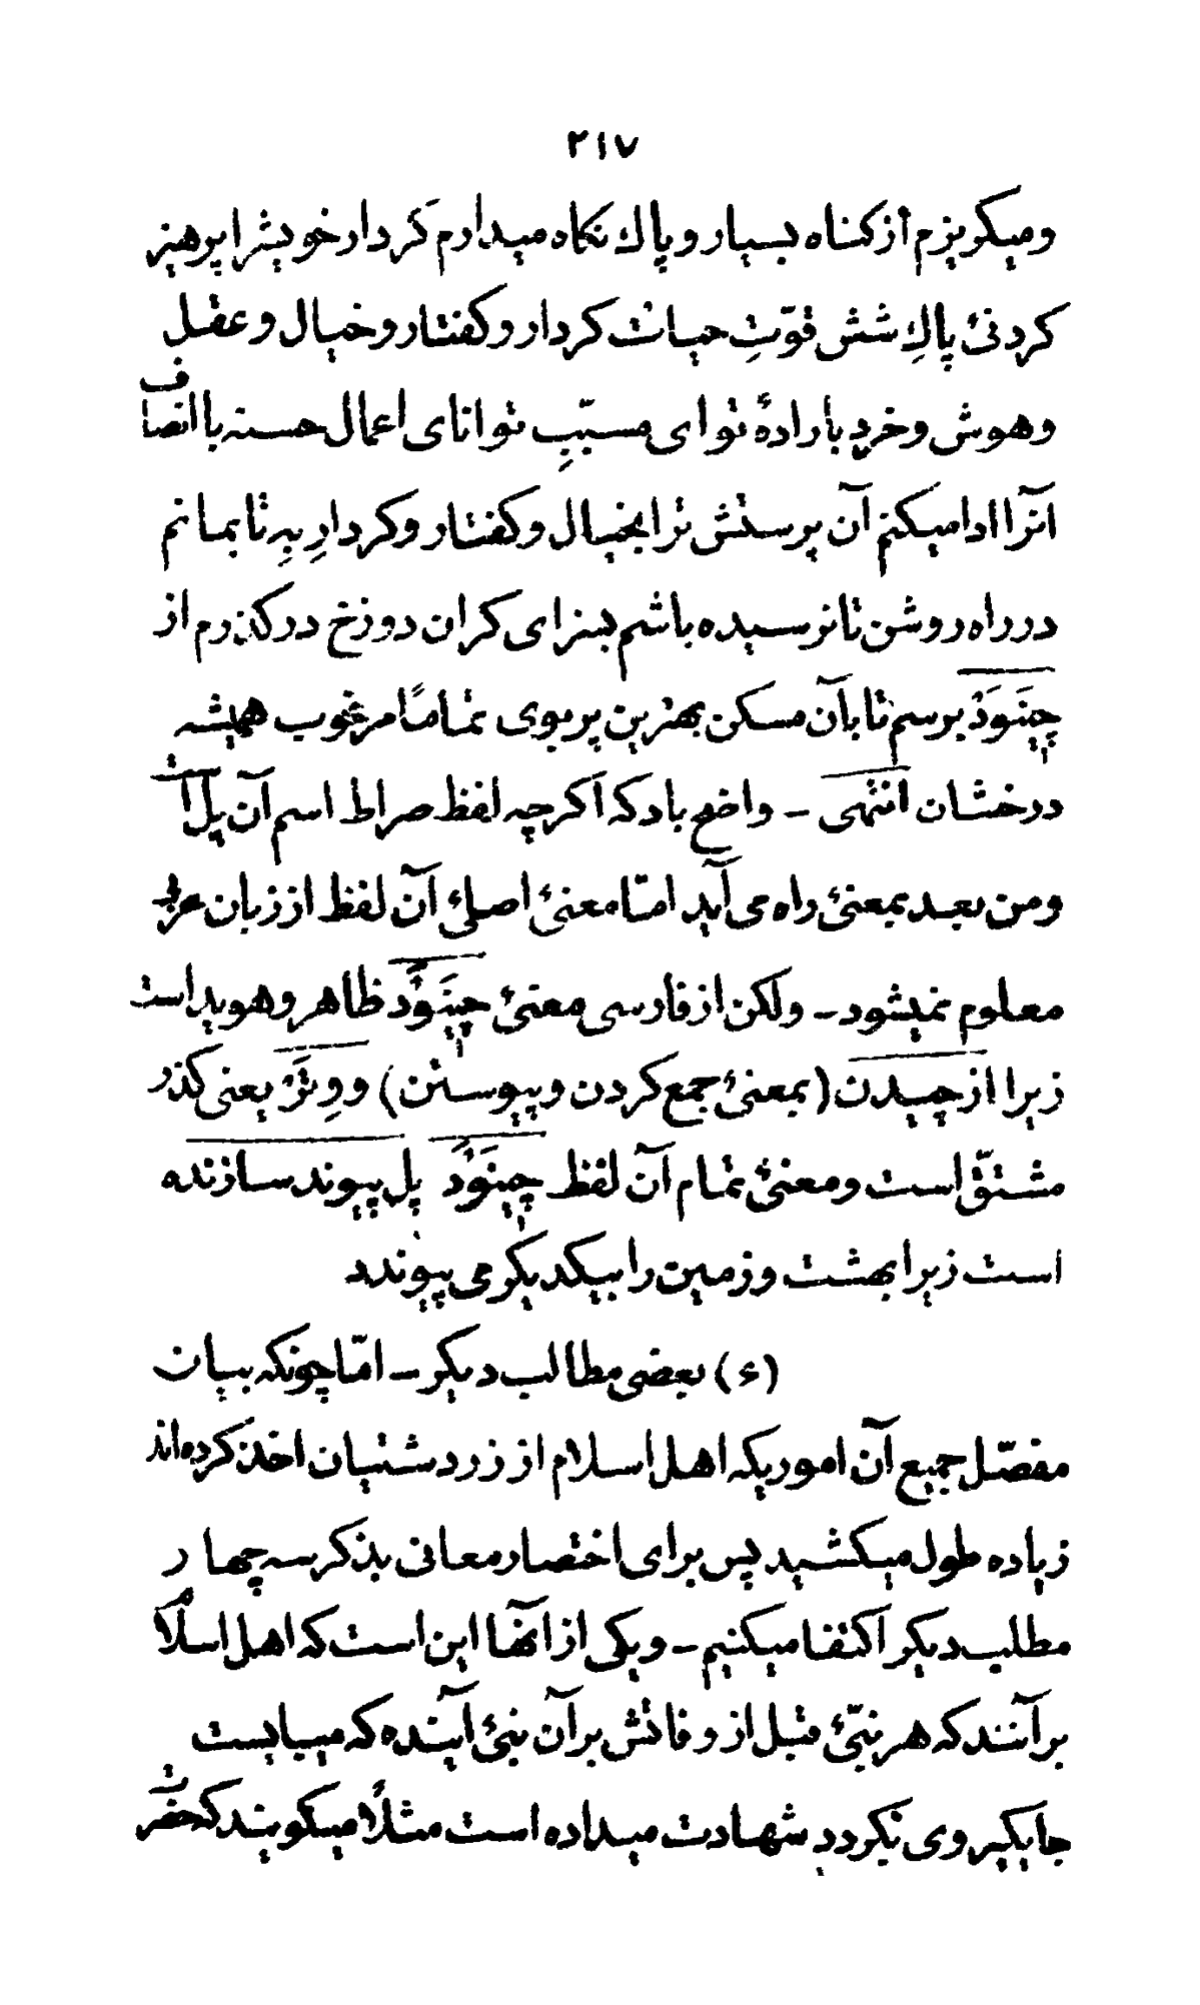 ٢١٧
و میکریزم از کناه بسیار و پاك نکاه میدارم کردار خویشرا پرهیز
کردنئ پاكِ شش قوّتِ حیات کردار و کفتار و خیال و عقل
و هوش و خرد بارادهٔ تو ای مسبّبِ توانای اعمال حسنه با انصاف
آنرا ادا میکنم آن پرستش ترا بخیال و کفتار و کردارِ بِه تا بمانم
در راه روشن تا نرسیده باشم بسزای کران دوزخ درکذرم از
چِینَوَدْ برسم تا بآن مسکن بهترین پربوی تماماً مرغوب همیشه
درخشان انتهی – واضح باد که اکرچه لفظ صراط اسم آن پل است
و من بعد بمعنئ راه می آید امّا معنئ اصلئ آن لفظ از زبان عربی
معلوم نمیشود – ولکن از فارسی معنئ چِینَوَدْ ظاهر و هویداست
زیرا از چیدن (بمعنئ جمع کردن و پیوستن) و وِتَرْ یعنی کذر
مشتقّ است و معنئ تمام آن لفظ چِینَوَدْ پل پیوند سازنده
است زیرا بهشت و زمین را بیکدیکر می پیوندد
(٤) بعضی مطالب دیکر – امّا چونکه بیان
مفصّل جمیع آن اموریکه اهل اسلام از زردشتیان اخذ کرده‌اند
زیاده طول میکشید پس برای اختصار معانی بذکر سه چهار
مطلب دیکر اکتفا میکنیم – و یکی از آنها این است که اهل اسلام
بر آنند که هر نبیّئ قبل از وفاتش بر آن نبئ آینده که میبایست
جایکیر وی بکردد شهادت میداده است مثلاً میکویند که حضرت